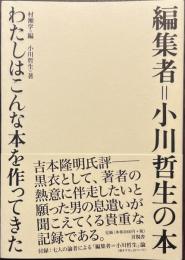 編集者=小川哲生の本
わたしはこんな本を作ってきた
村瀬学・編 小川哲生・著
吉本隆明氏評
黒衣として、著者の
熱意に伴走したいと
願った男の息遣いが
聞こえてくる貴重な
記録である。
言視舎
付録:七人の論者による「編集者=小川哲生」論